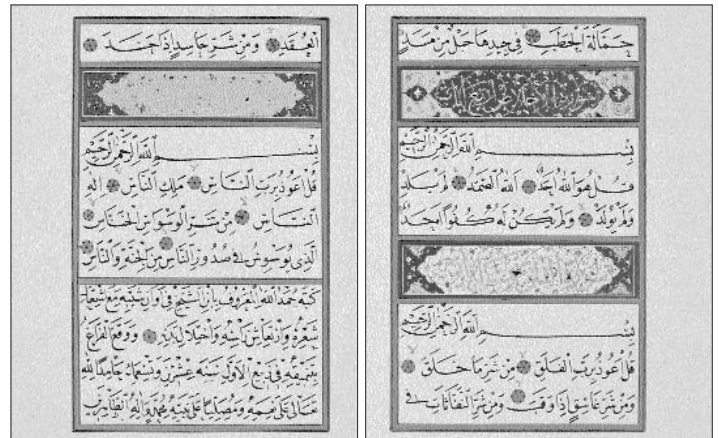 حَمَّالَةَ الْحَطَبِ فِي جِيدِهَا حَبْلٌ مِنْ مَسَدٍ
سورة الاخلاص اربع آيات
بِسْمِ اللهِ الرَّحْمٰنِ الرَّحِيمِ
قُلْ هُوَ اللهُ اَحَدٌ اَللهُ الصَّمَدُ لَمْ يَلِدْ
وَلَمْ يُولَدْ وَلَمْ يَكُنْ لَهُ كُفُوًا اَحَدٌ
بِسْمِ اللهِ الرَّحْمٰنِ الرَّحِيمِ
قُلْ اَعُوذُ بِرَبِّ الْفَلَقِ مِنْ شَرِّ مَا خَلَقَ
وَمِنْ شَرِّ غَاسِقٍ اِذَا وَقَبَ وَمِنْ شَرِّ النَّفَّاثَاتِ فِي
الْعُقَدِ وَمِنْ شَرِّ حَاسِدٍ اِذَا حَسَدَ
بِسْمِ اللهِ الرَّحْمٰنِ الرَّحِيمِ
قُلْ اَعُوذُ بِرَبِّ النَّاسِ مَلِكِ النَّاسِ اِلٰهِ
النَّاسِ مِنْ شَرِّ الْوَسْوَاسِ الْخَنَّاسِ
الَّذِي يُوَسْوِسُ فِي صُدُورِ النَّاسِ مِنَ الْجِنَّةِ وَالنَّاسِ
كتبه حمد الله المعروف بابن الشيخ في اوان شيبه مع
شعره وارتعاش رأسه واختلال بدنه ووقع الفراغ
بتنميقه في ربيع الاول سنه عشرين وتسعمائه حامدا لله
تعالى على نعمه ومصليا على نبيه محمد وآله الطاهرين